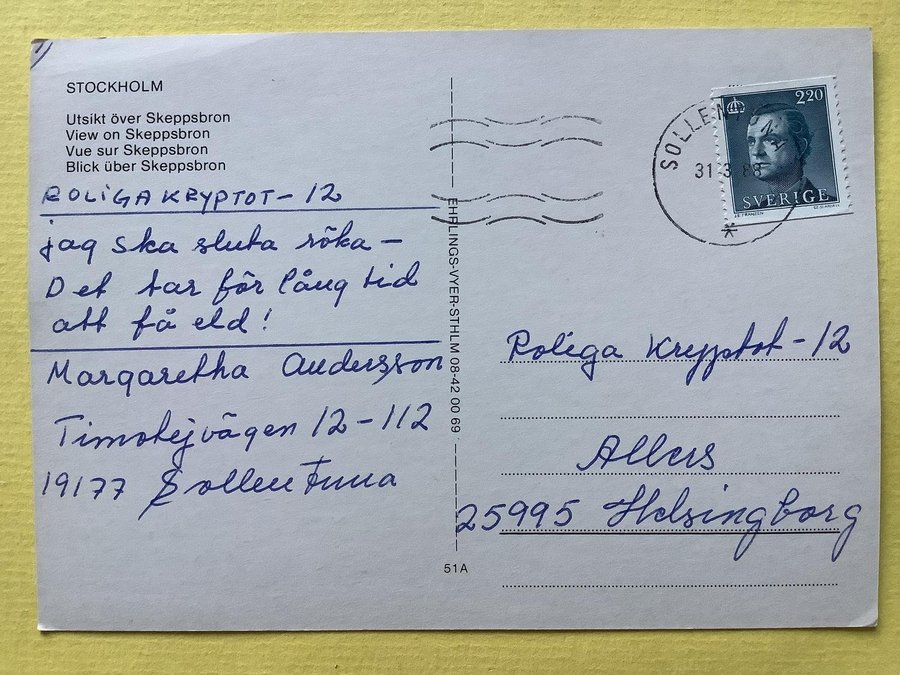 STOCKHOLM
Utsikt över Skeppsbron
View on Skeppsbron
Vue sur Skeppsbron
Blick über Skeppsbron
ROLIGA KRYPTOT-12
jag ska sluta röka-
Det tar för lång tid
att få eld!
Margaretha Andersson
Timotejvägen 12-112
19177 Sollentuna
EHRLINGS-VYER-STHLM 08-42 00 69
51A
31 3 88
220
SVERIGE
Roliga Kryptot-12
Allers
25995 Helsingborg